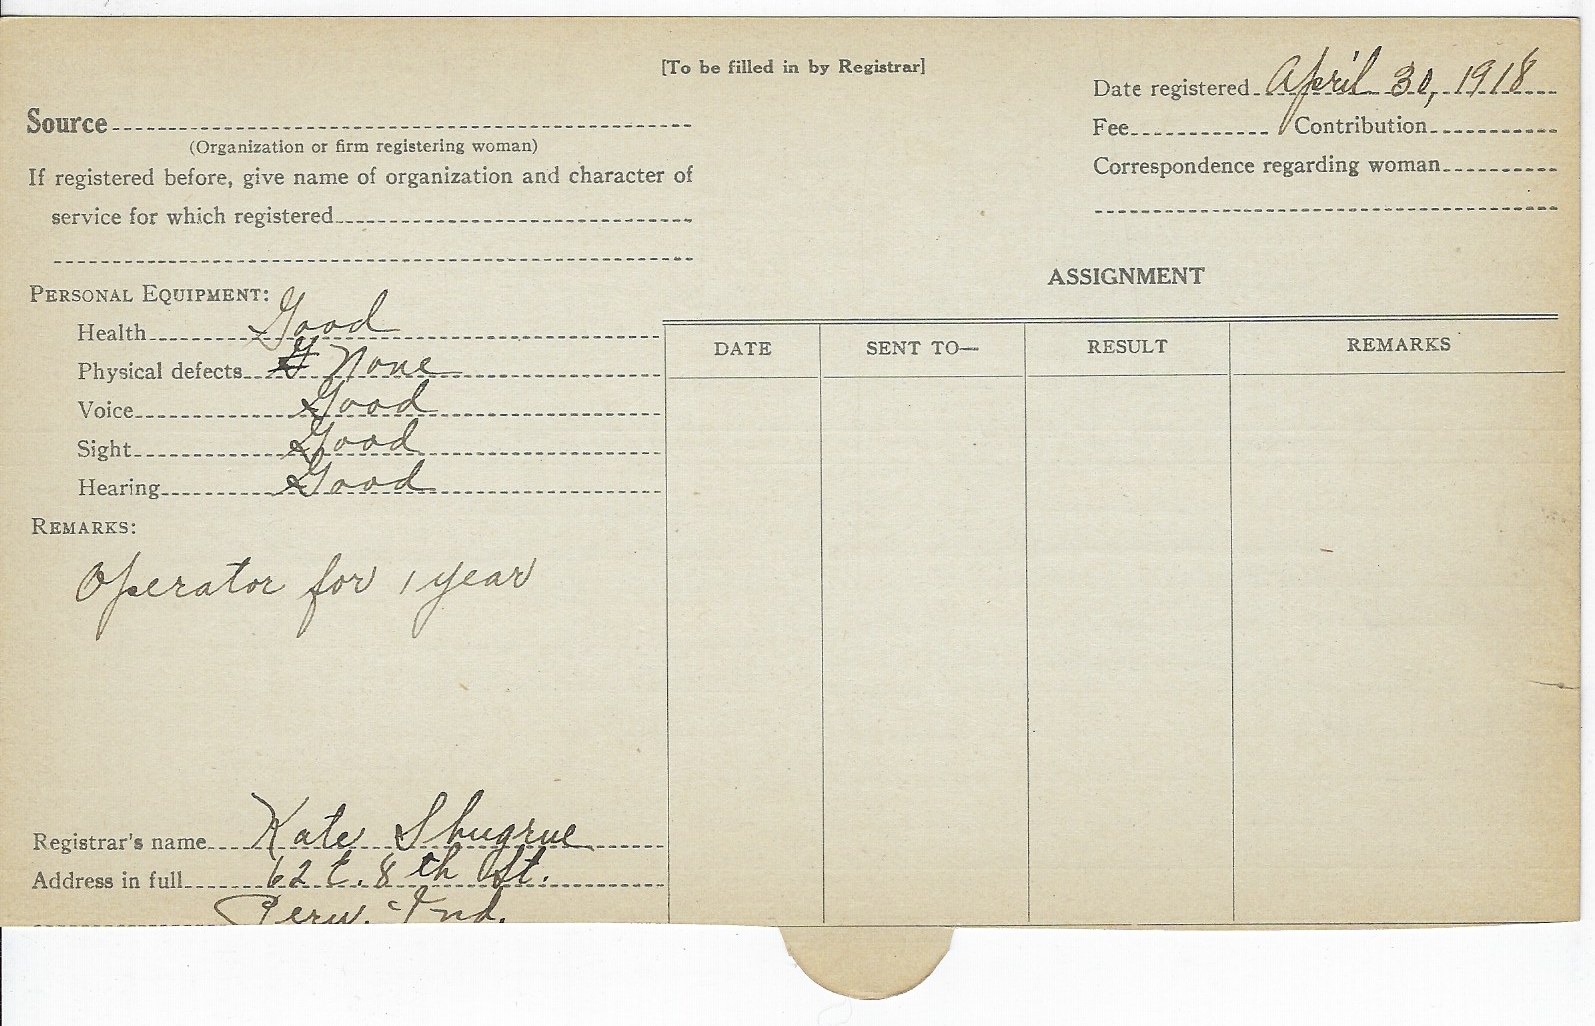 [To be filled in by Registrar]
Date registered April 30, 1918
Fee Contribution
Correspondence regarding woman
Source
(Organization or firm registering woman)
If registered before, give name of organization and character of
service for which registered
PERSONAL EQUIPMENT:
Health Good
Physical defects None
Voice Good
Sight Good
Hearing Good
REMARKS:
Operator for 1 year
Registrar's name Kate Shugrue
Address in full 62 E. 8th St.
Peru. Ind.
ASSIGNMENT
DATE SENT TO— RESULT REMARKS